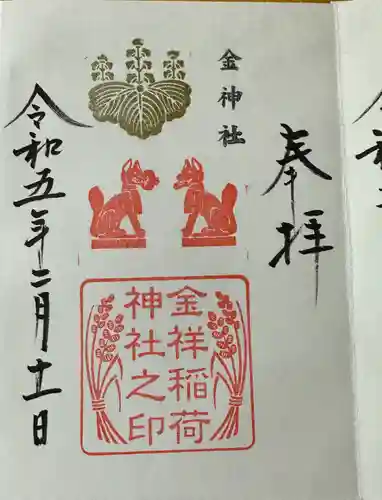 奉拝
金神社
金祥稲荷
神社之印
令和五年二月十一日